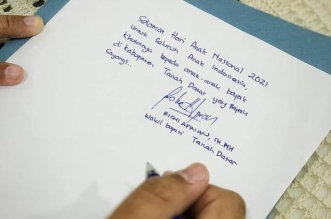 Selamat Hari Anak Nasional 2021
untuk Seluruh Anak Indonesia,
khususnya kepada anak-anak bapak
di Kabupaten Tanah Datar yang Bapak
Sayangi.
RICHI APRIAN, SH.MH
Wakil Bupati Tanah Datar